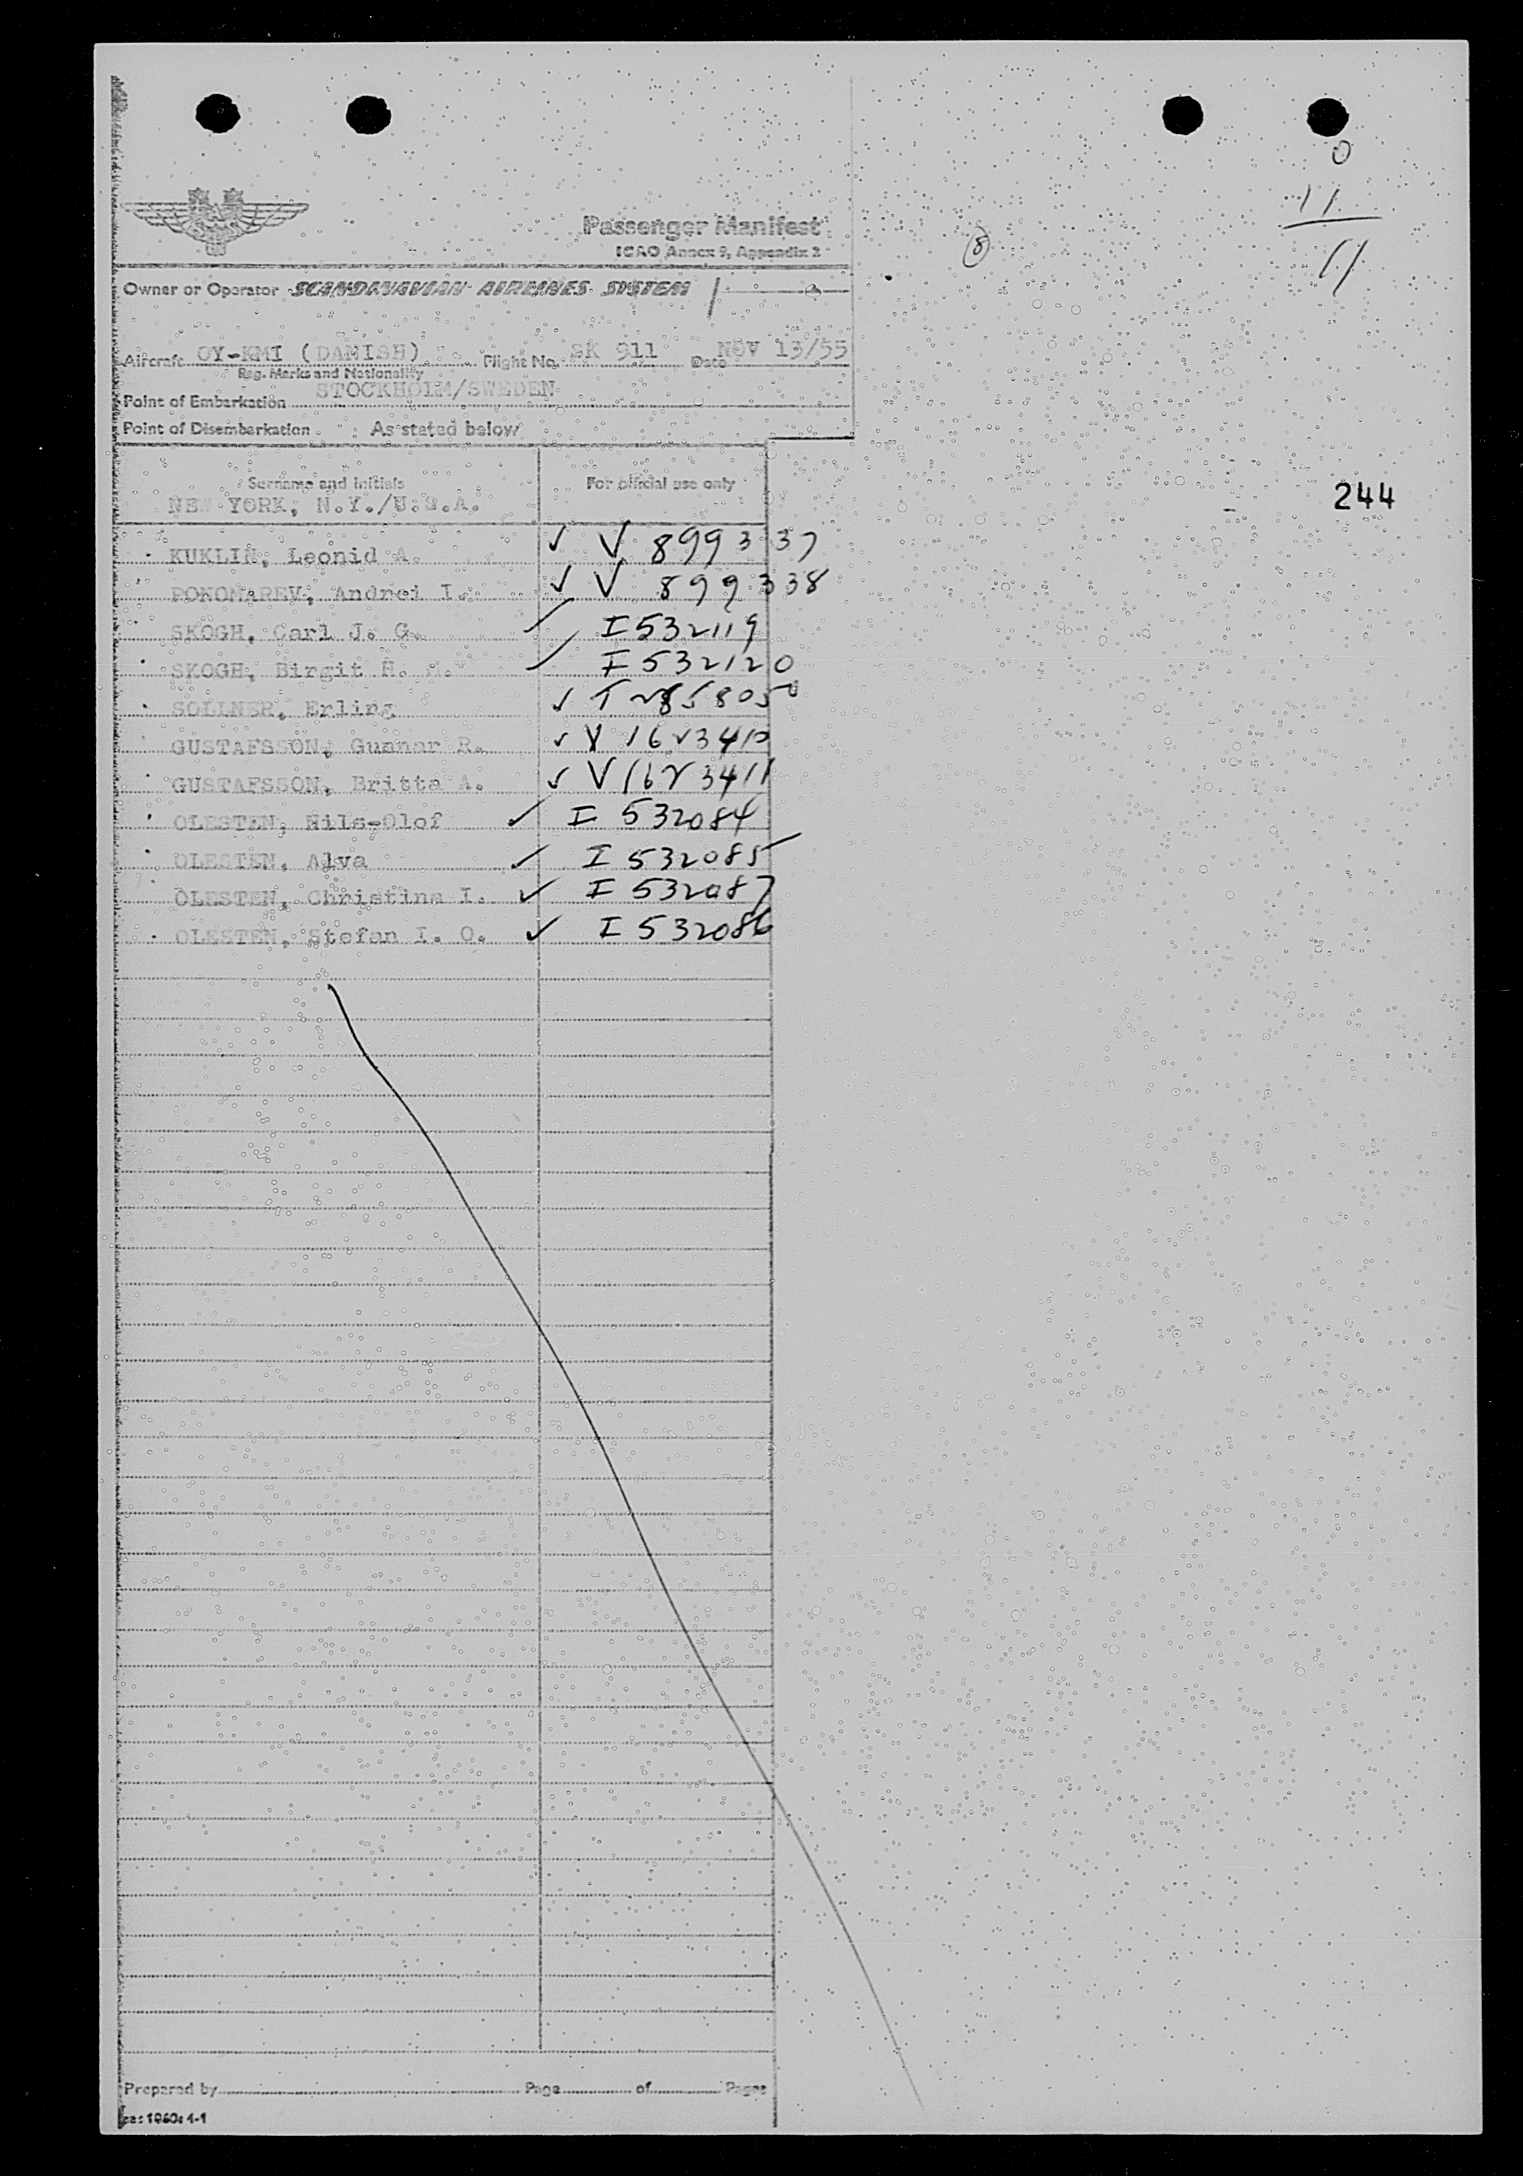 0
11
11
8
Passenger Manifest
ICAO Annex 9, Appendix 2
Owner or Operator SCANDINAVIAN AIRLINES SYSTEM
Aircraft OY-KMI (DANISH) Flight No. SK 911 Date NOV 13/55
Reg. Marks and Nationality
Point of Embarkation STOCKHOLM/SWEDEN
Point of Disembarkation As stated below
Surname and initials For official use only
NEW YORK, N.Y./U.S.A.
244
KUKLIN, Leonid A. ✓ V 899337
PONOMAREV, Andrei I. ✓ V 899338
SKOGH, Carl J. G. ✓ I 532119
SKOGH, Birgit H. ✓ I 532120
SOLLNER, Erling ✓
GUSTAFSSON, Gunnar R. ✓ V 1623410
GUSTAFSSON, Britta A. ✓ V 1623411
OLESTEN, Nils-Olof ✓ I 532084
OLESTEN, Alva ✓ I 532085
OLESTEN, Christina I. ✓ I 532087
OLESTEN, Stefan I. O. ✓ I 532086
Prepared by Page of Pages